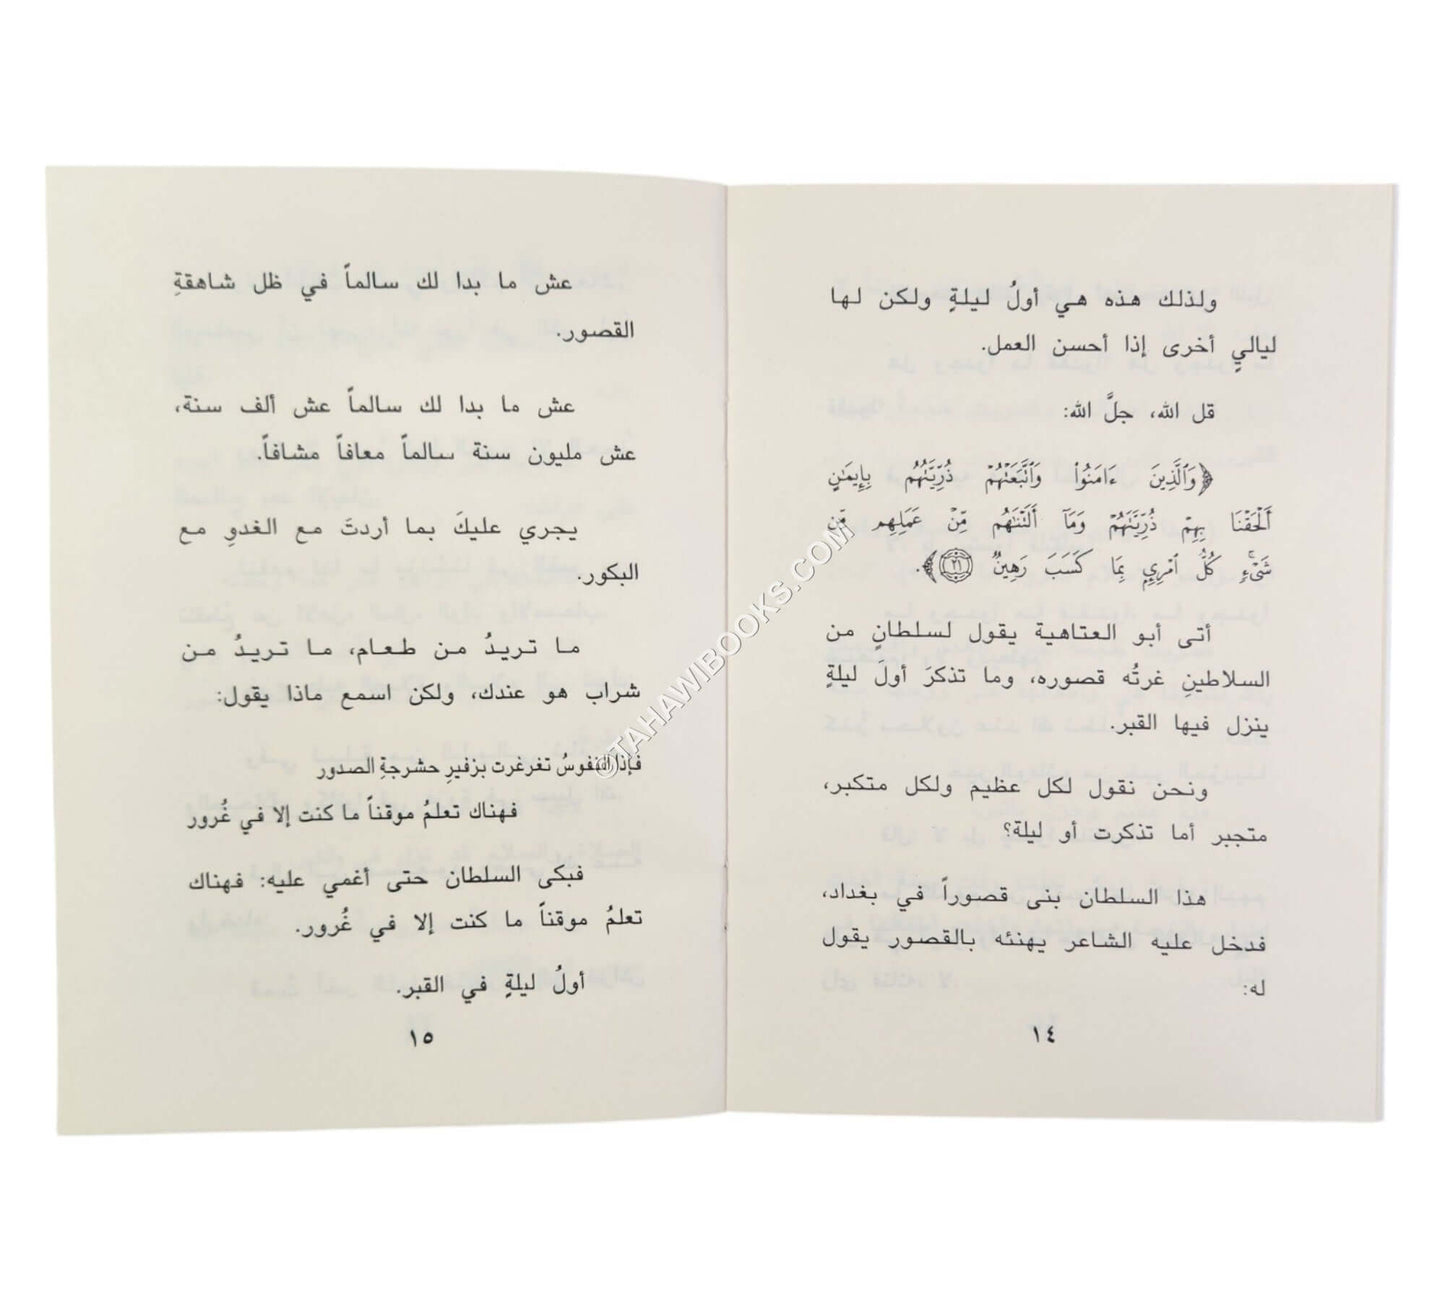 ولذلك هذه هي أولُ ليلةٍ ولكن لها
ليالٍي أخرى إذا أحسن العمل.
قل الله، جلَّ الله:
﴿وَٱلَّذِينَ ءَامَنُوا۟ وَٱتَّبَعَتْهُمْ ذُرِّيَّتُهُم بِإِيمَٰنٍ
أَلْحَقْنَا بِهِمْ ذُرِّيَّتَهُمْ وَمَآ أَلَتْنَٰهُم مِّنْ عَمَلِهِم مِّن
شَىْءٍ كُلُّ ٱمْرِئٍ بِمَا كَسَبَ رَهِينٌ ٢١﴾.
أتى أبو العتاهية يقول لسلطانٍ من
السلاطينِ غرتُه قصوره، وما تذكرَ أولَ ليلةٍ
ينزل فيها القبر.
ونحن نقول لكل عظيم ولكل متكبر،
متجبر أما تذكرت أو ليلة؟
هذا السلطان بنى قصوراً في بغداد،
فدخل عليه الشاعر يهنئه بالقصور يقول
له:
١٤
عش ما بدا لك سالماً في ظل شاهقةِ
القصور.
عش ما بدا لك سالماً عش ألف سنة،
عش مليون سنة سالماً معافاً مشافاً.
يجري عليكَ بما أردتَ مع الغدوِ مع
البكور.
ما تريدُ من طعام، ما تريدُ من
شراب هو عندك، ولكن اسمع ماذا يقول:
فإذا النفوسُ تغرغرت بزفيرِ حشرجةِ الصدور
فهناك تعلمُ موقناً ما كنت إلا في غُرور
فبكى السلطان حتى أغمي عليه: فهناك
تعلمُ موقناً ما كنت إلا في غُرور.
أولُ ليلةٍ في القبر.
١٥
©TAHAWIBOOKS.COM